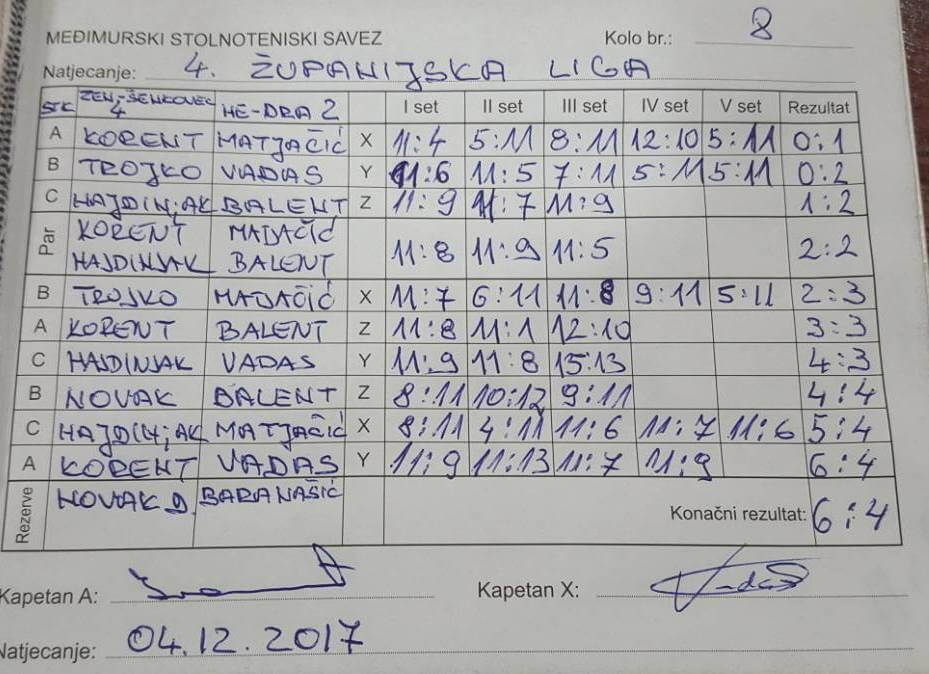 MEĐIMURSKI STOLNOTENISKI SAVEZ Kolo br.: 8
Natjecanje: 4. ŽUPANIJSKA LIGA
STK ZEN,-ŠENKOVEC 4 HE-DRA 2 I set II set III set IV set V set Rezultat
A KORENT MATJAČIĆ X 11:4 5:11 8:11 12:10 5:11 0:1
B TROJKO VADAS Y 11:6 11:5 7:11 5:11 5:11 0:2
C HAJDINJAK BALENT Z 11:9 11:7 11:9 1:2
Par KORENT MADAČIĆ 11:8 11:9 11:5 2:2
HAJDINJAK BALENT
B TROJKO MADAČIĆ X 11:7 6:11 11:8 9:11 5:11 2:3
A KORENT BALENT Z 11:8 11:1 12:10 3:3
C HAJDINJAK VADAS Y 11:9 11:8 15:13 4:3
B NOVAK BALENT Z 8:11 10:12 9:11 4:4
C HAJDINJAK MATJAČIĆ X 8:11 4:11 11:6 11:7 11:6 5:4
A KORENT VADAS Y 11:9 11:13 11:7 11:9 6:4
Rezerve NOVAK D. BARANAŠIĆ Konačni rezultat: 6:4
Kapetan A: Kapetan X: Vadas
Natjecanje: 04.12.2017